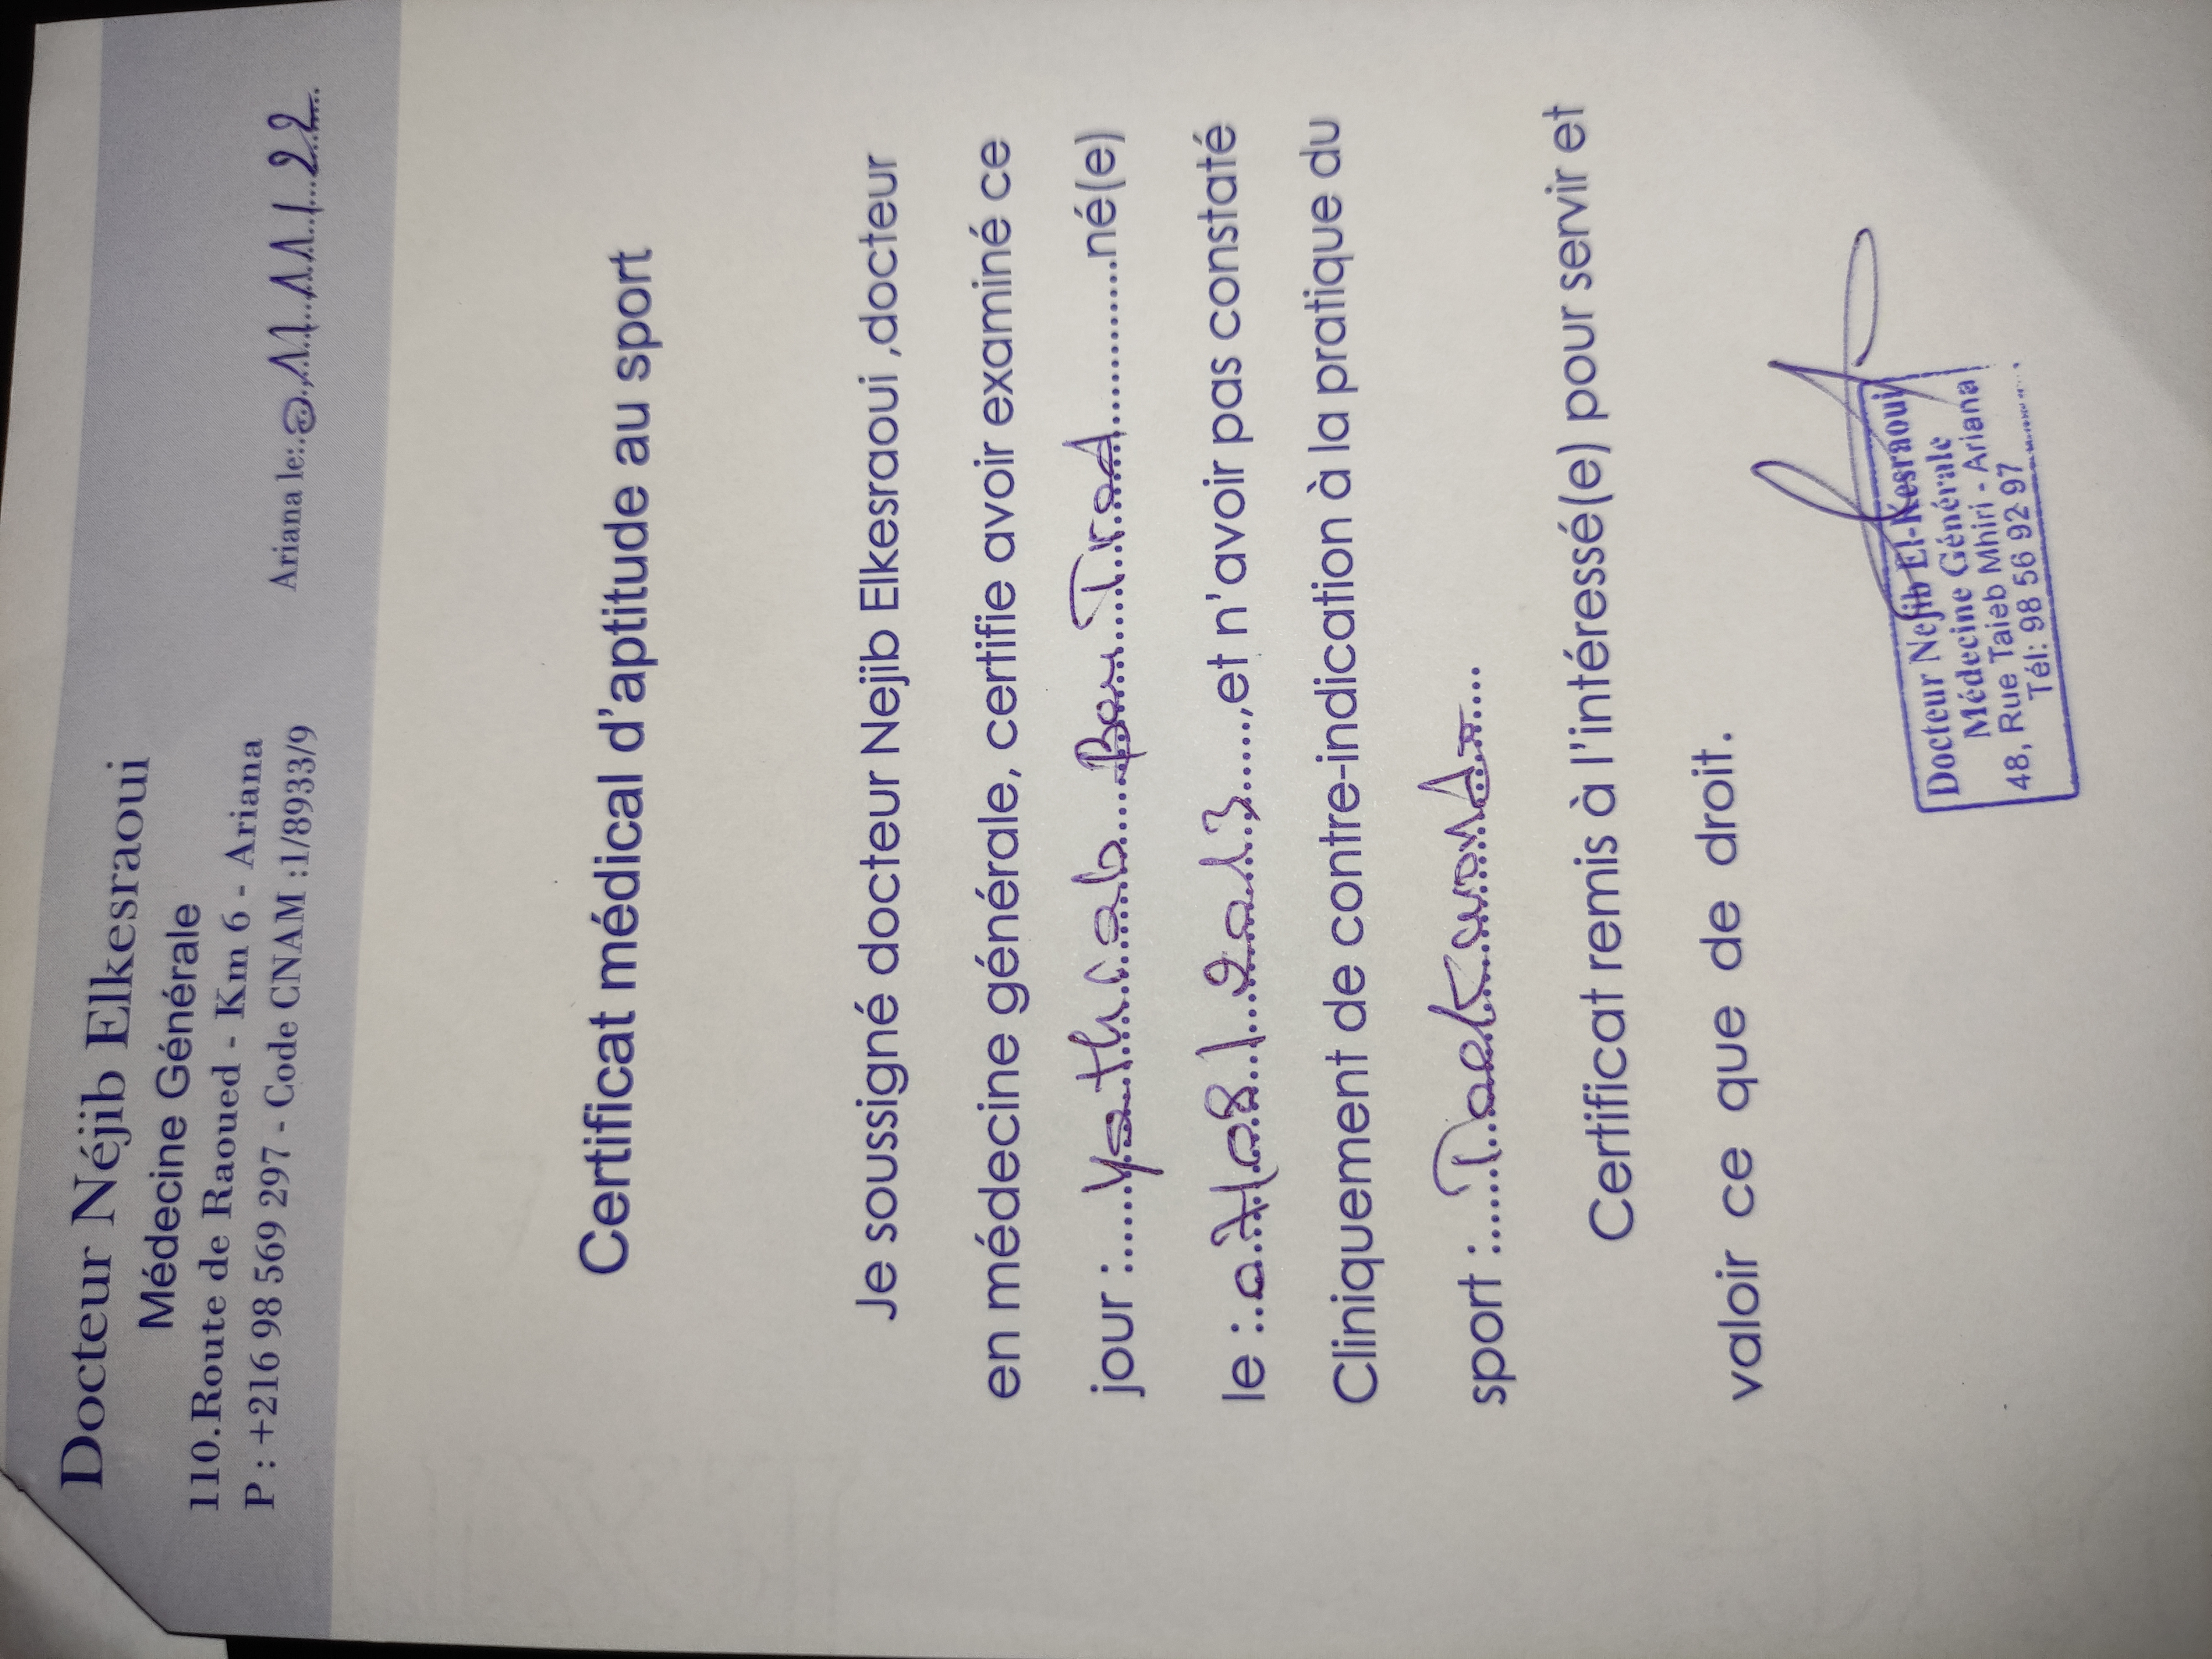 Docteur Néjib Elkesraoui
Médecine Générale
110.Route de Raoued - Km 6 - Ariana
P : +216 98 569 297 - Code CNAM :1/8933/9
Ariana le:. 11/11/22
Certificat médical d'aptitude au sport
Je soussigné docteur Nejib Elkesraoui ,docteur
en médecine générale, certifie avoir examiné ce
jour :...... Bou Trad ......né(e)
le :..07/08/2013......,et n'avoir pas constaté
Cliniquement de contre-indication à la pratique du
sport :......Taekwondo.....
Certificat remis à l'intéressé(e) pour servir et
valoir ce que de droit.
Docteur Nejib El-Kesraoui
Médecine Générale
48, Rue Taieb Mhiri - Ariana
Tél: 98 56 92 97